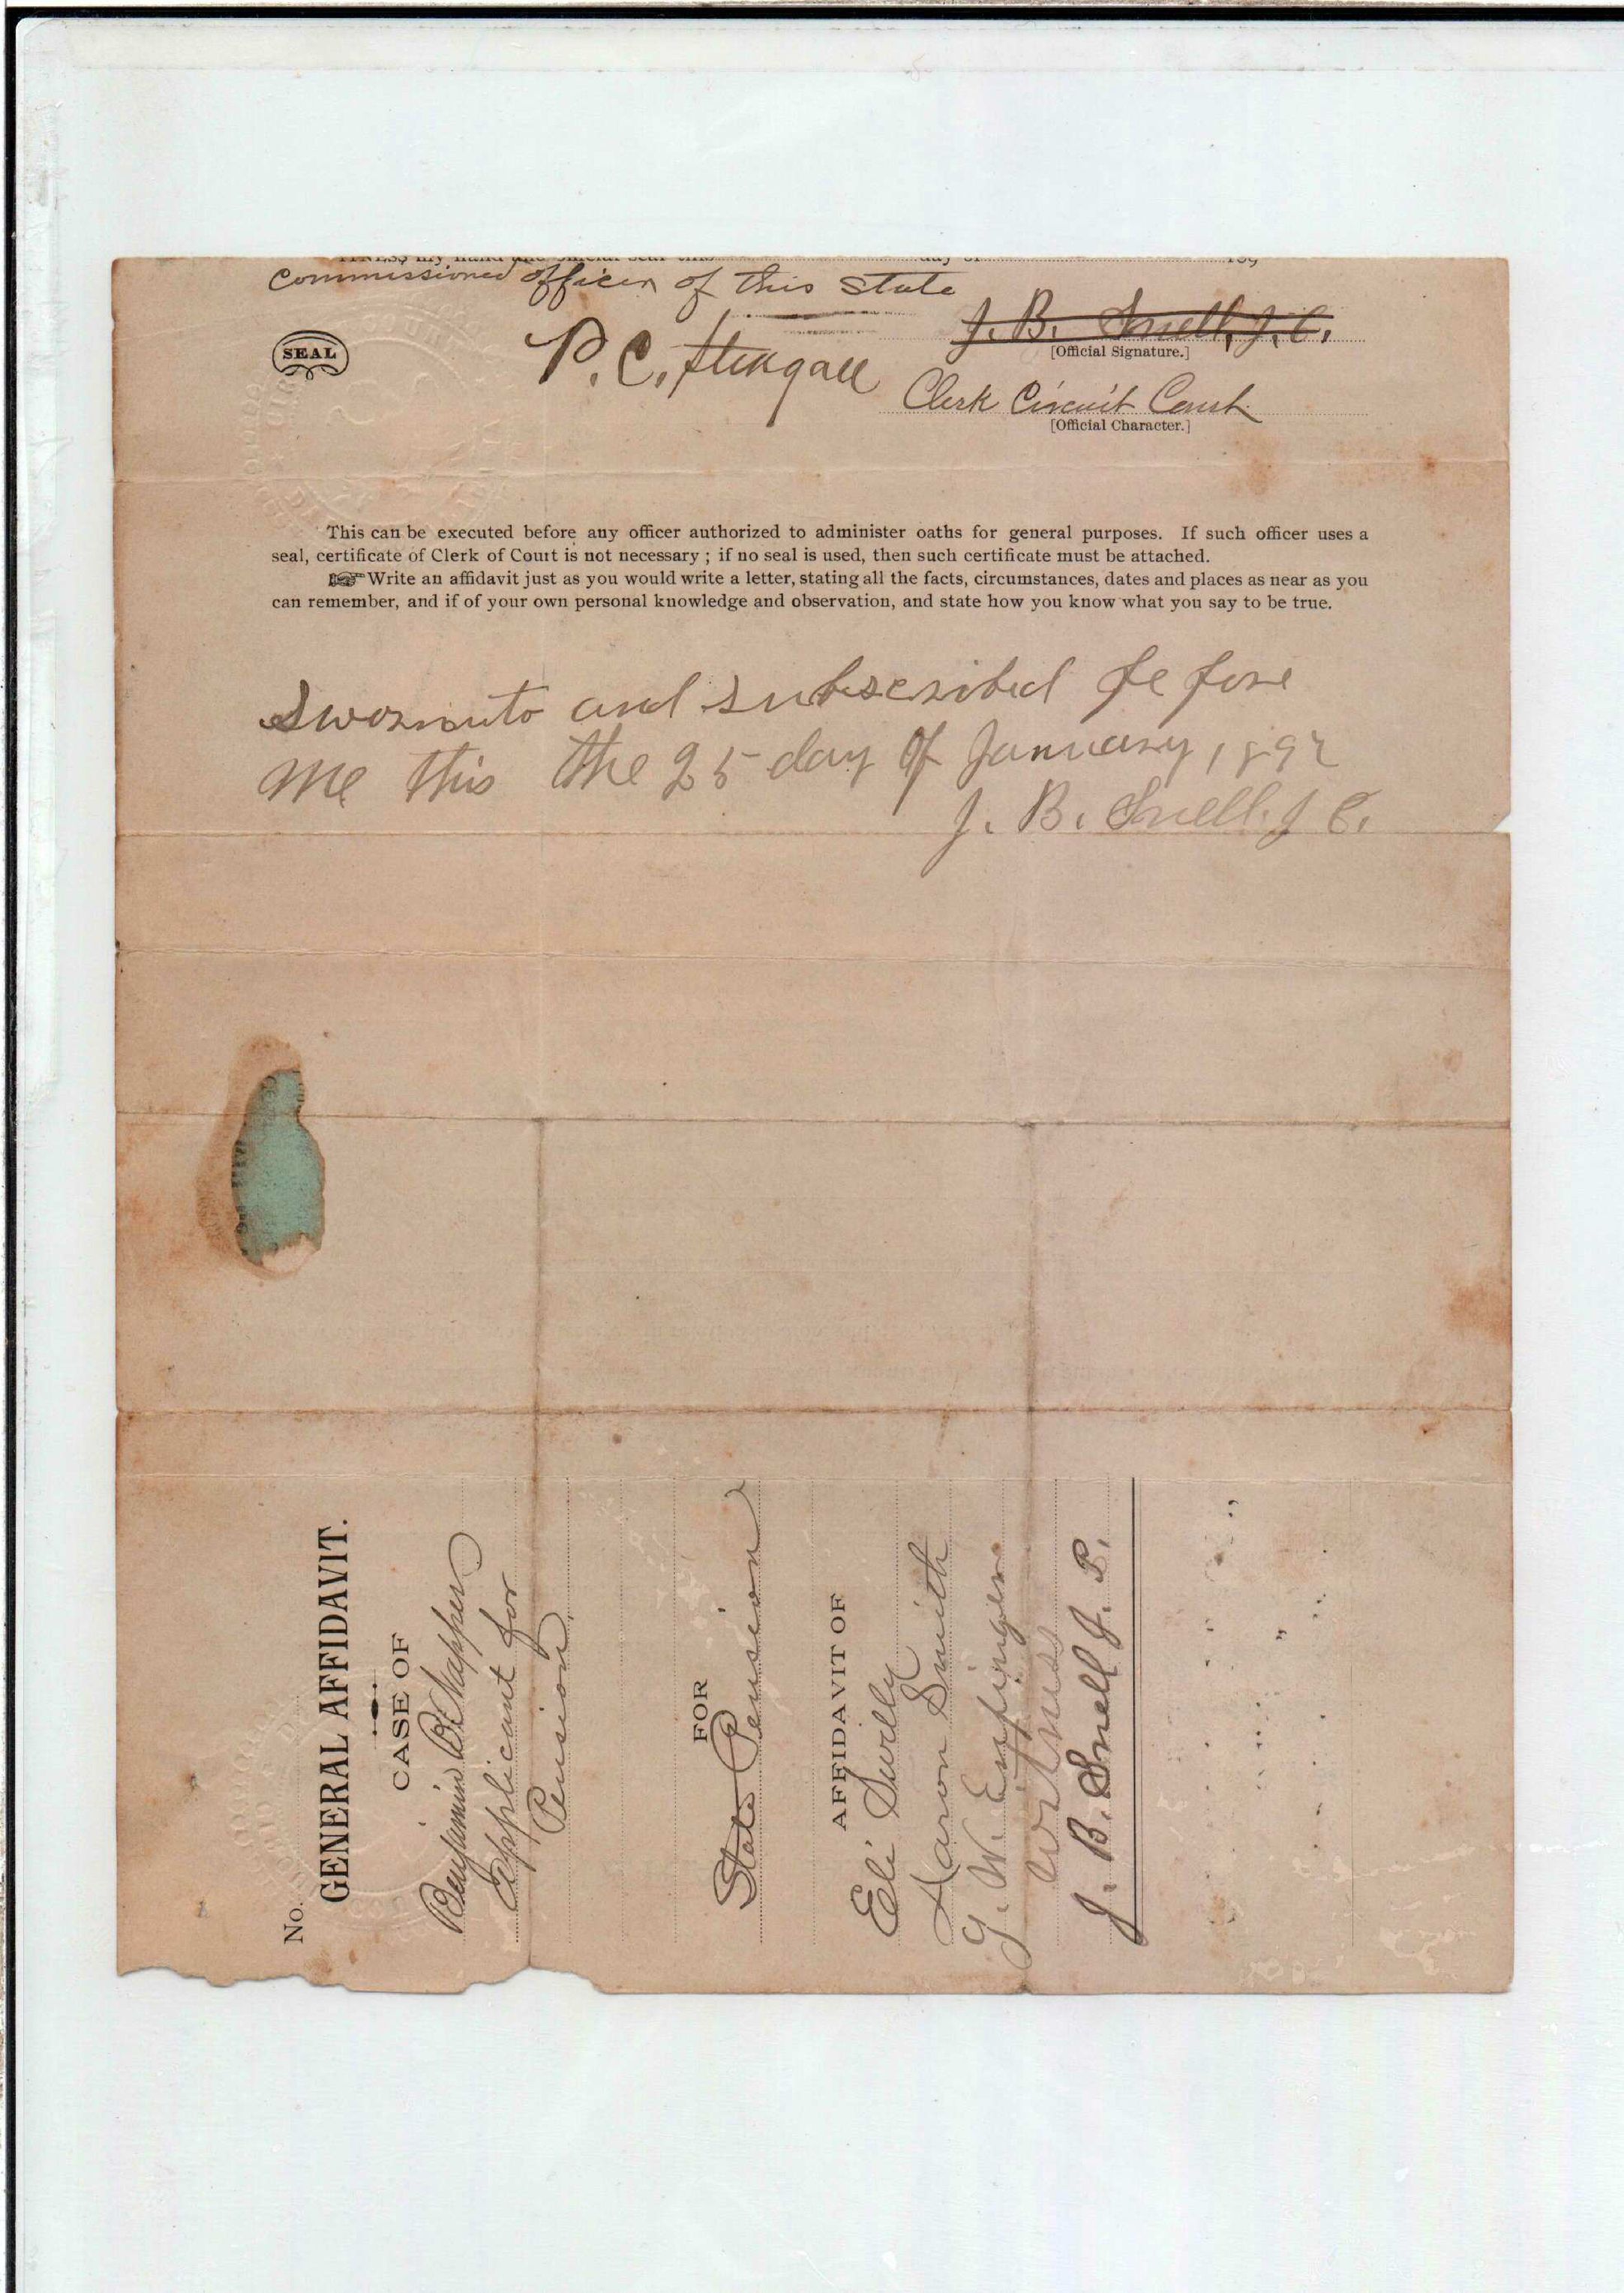 WITNESS my hand and official seal this day of 189
Commissioned officer of this state
J. B. Snell, J. C.
SEAL
[Official Signature.]
P. C.
Clerk Circuit Court
[Official Character.]
This can be executed before any officer authorized to administer oaths for general purposes. If such officer uses a
seal, certificate of Clerk of Court is not necessary ; if no seal is used, then such certificate must be attached.
Write an affidavit just as you would write a letter, stating all the facts, circumstances, dates and places as near as you
can remember, and if of your own personal knowledge and observation, and state how you know what you say to be true.
Swornunto and subscribed before
me this the 25 day of January, 1892
J. B. Snell. J C.
No.
GENERAL AFFIDAVIT.
CASE OF
Benjamin B. Napper
Applicant for
Pension
FOR
State Pension
AFFIDAVIT OF
Eli Swilly
Aaron Smith
G. W. Enfinger
Witness
J. B. Snell J. P.